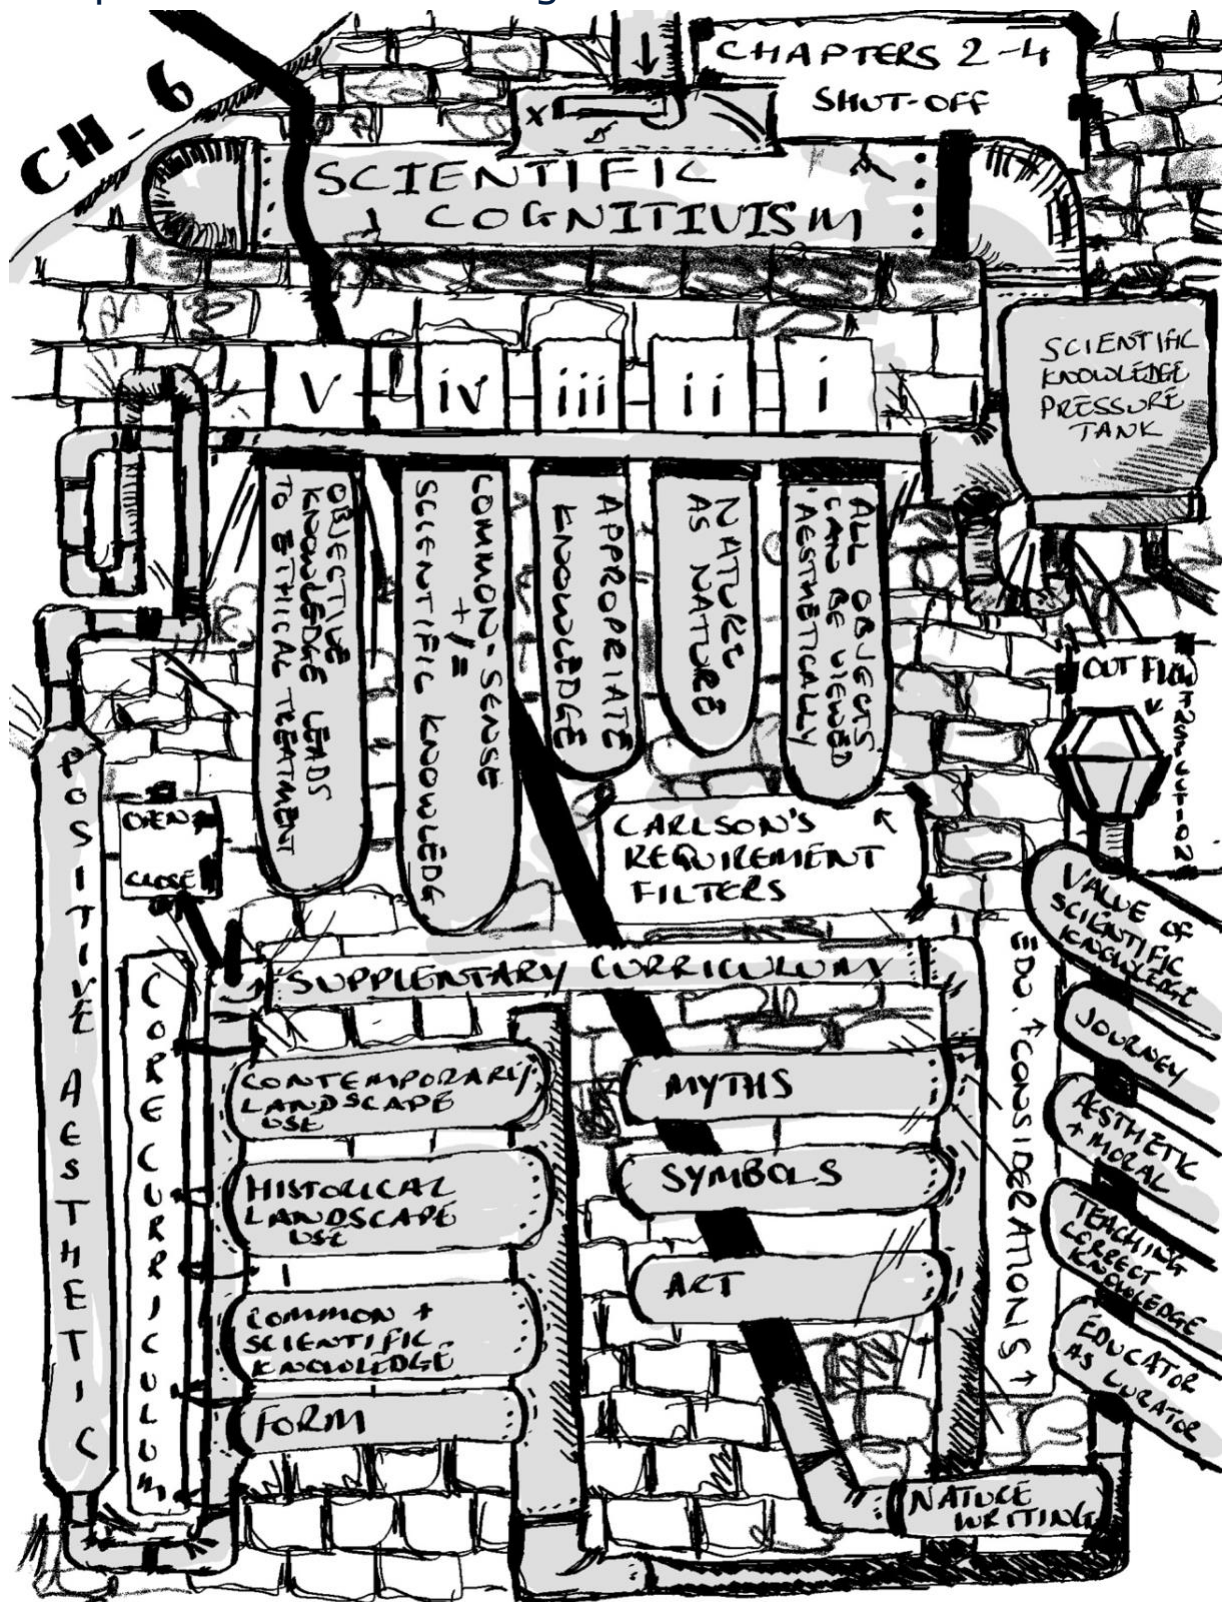 CH_6
CHAPTERS 2-4
SHUT-OFF
X
SCIENTIFIC
COGNITIVISM
SCIENTIFIC
KNOWLEDGE
PRESSURE
TANK
V
iv
iii
ii
i
OBJECTIVE
KNOWLEDGE LEADS
TO ETHICAL TREATMENT
COMMON-SENSE
+/=
SCIENTIFIC KNOWLEDG
APPROPRIATE
KNOWLEDGE
NATURE
AS NATURE
ALL OBJECTS
CAN BE VIEWED
AESTHETICALLY
OUT FLOW
INSPECTION
POSITIVE AESTHETIC
OPEN
CLOSE
CARLSON'S
REQUIREMENT
FILTERS
SUPPLENTARY CURRICULUM
CORE CURRICULUM
CONTEMPORARY
LANDSCAPE
USE
HISTORICAL
LANDSCAPE
USE
COMMON +
SCIENTIFIC
KNOWLEDGE
FORM
MYTHS
SYMBOLS
ART
EDU. CONSIDERATIONS
VALUE OF
SCIENTIFIC
KNOWLEDGE
JOURNEY
AESTHETIC
+ MORAL
TEACHING
CORRECT
KNOWLEDGE
EDUCATOR
AS CURATOR
NATURE
WRITING